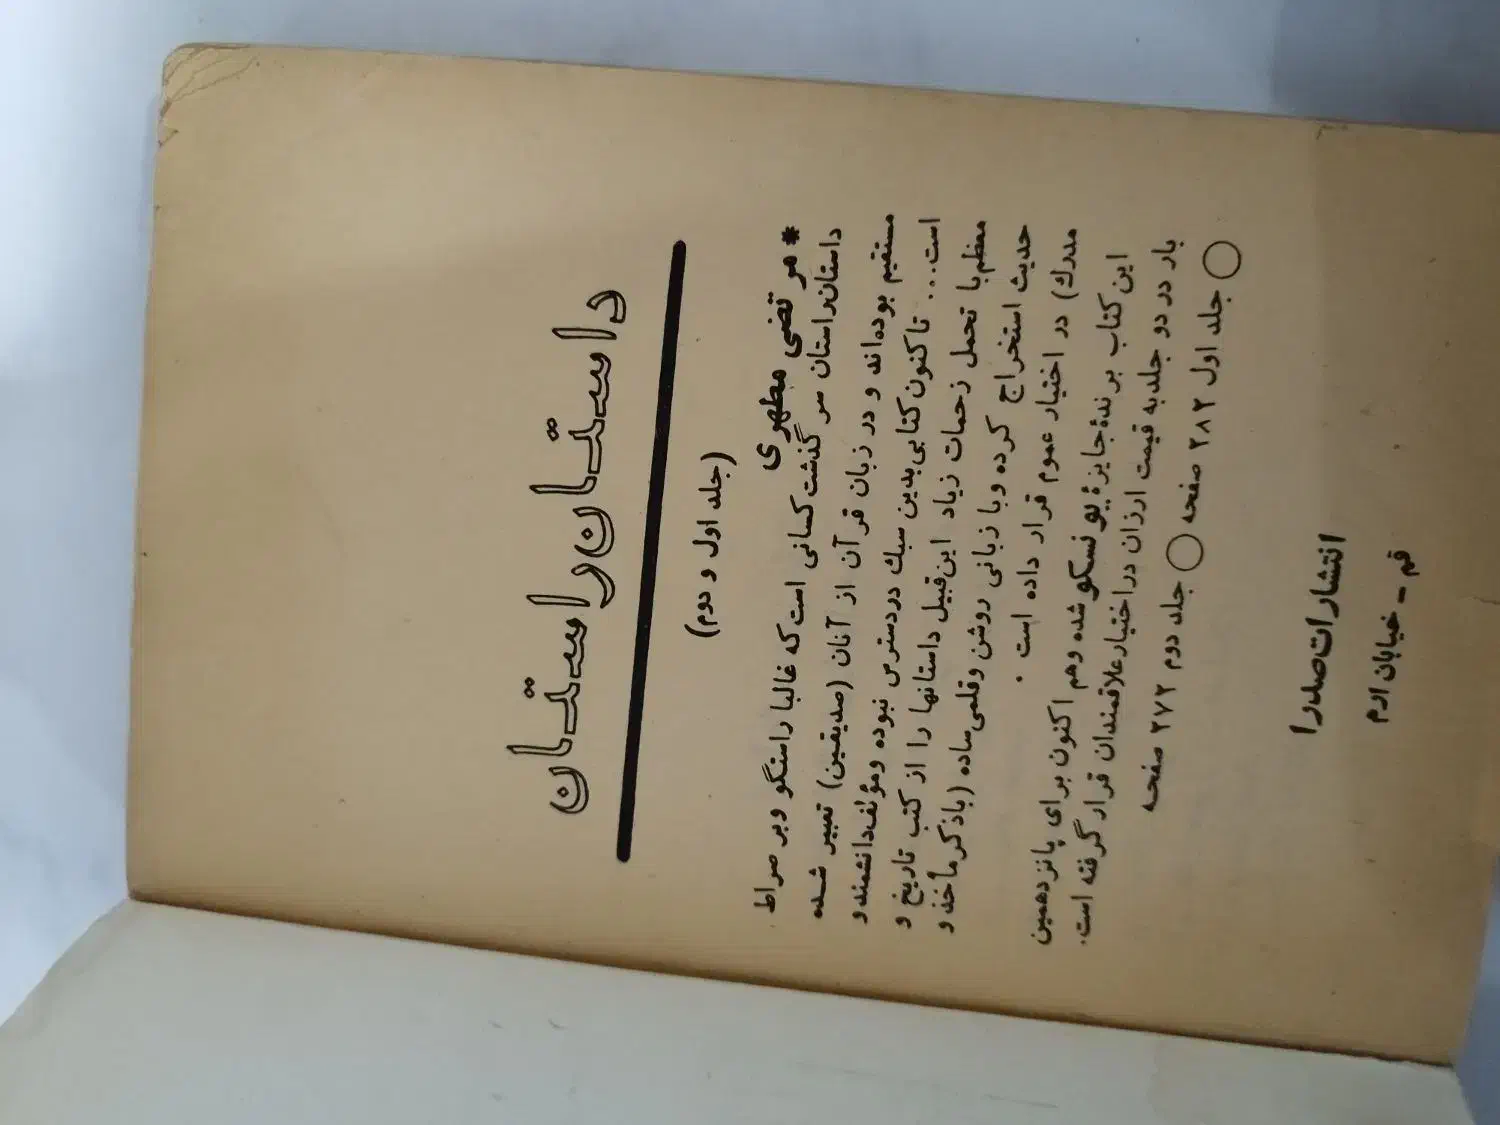 داستان راستان
(جلد اول و دوم)
* مرتضی مطهری
داستان راستان سرگذشت کسانی است که غالبا راستگو و بر صراط
مستقیم بوده‌اند و در زبان قرآن از آنان (صدیقین) تعبیر شده
است... تاکنون کتابی بدین سبک در دسترس نبوده و مؤلف دانشمند و
معظم با تحمل زحمات زیاد این قبیل داستانها را از کتب تاریخ و
حدیث استخراج کرده و با زبانی روشن و قلمی ساده (با ذکر مأخذ و
مدرک) در اختیار عموم قرار داده است.
این کتاب برندهٔ جایزهٔ یونسکو شده و هم اکنون برای پانزدهمین
بار در دو جلد به قیمت ارزان در اختیار علاقمندان قرار گرفته است.
○ جلد اول ۲۸۲ صفحه ○ جلد دوم ۲۷۲ صفحه
انتشارات صدرا
قم - خیابان ارم